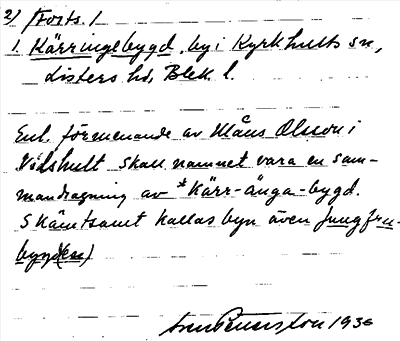 2) Forts. 1
1. Kärringebygd, by i Kyrkhults sn,
Listers hd, Blek. l.
Enl. förmenande av Måns Olsson i
Vilshult skall namnet vara en sam-
mandragning av *Kärr-änga-bygd.
Skämtsamt kallas byn även Jungfru-
bygd(en)
1936